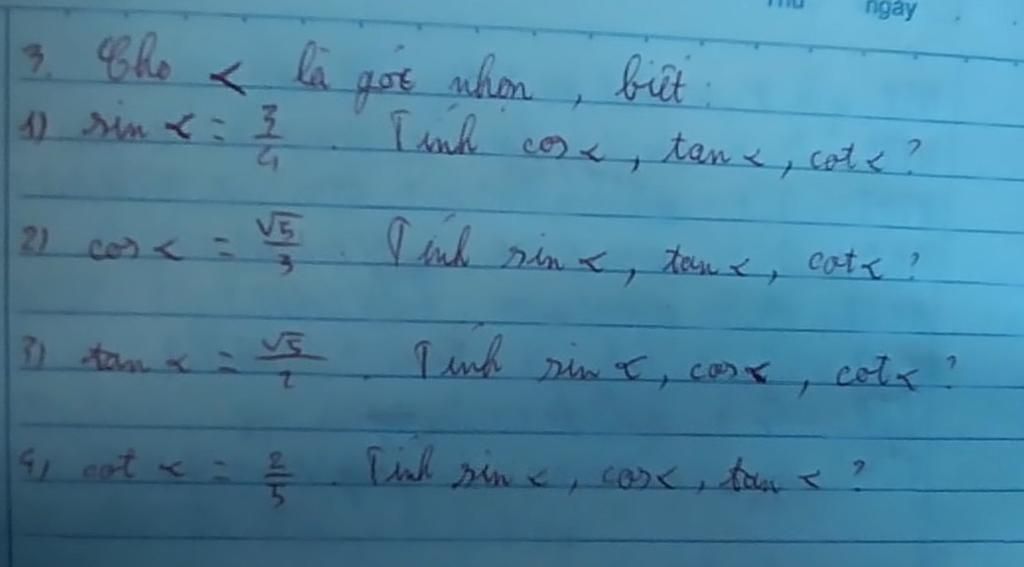 Thứ ngày
3. Cho α là góc nhọn, biết:
1) sin α = 3/4. Tính cos α, tan α, cot α?
2) cos α = √5/3. Tính sin α, tan α, cot α?
3) tan α = √5/2. Tính sin α, cos α, cot α?
4) cot α = 2/5. Tính sin α, cos α, tan α?